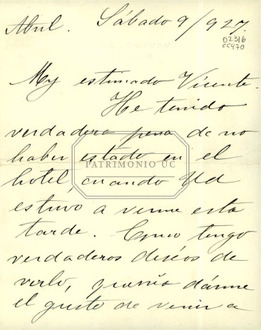 Abril. Sábado 9/927.
02316
cc470
My estimado Vicente.
He tenido
verdadera pena de no
haber estado en el
PATRIMONIO UC
hotel cuando Ud
estuvo a verme esta
tarde. Como tengo
verdaderos deseos de
verlo, querría dárme
el gusto de venir a